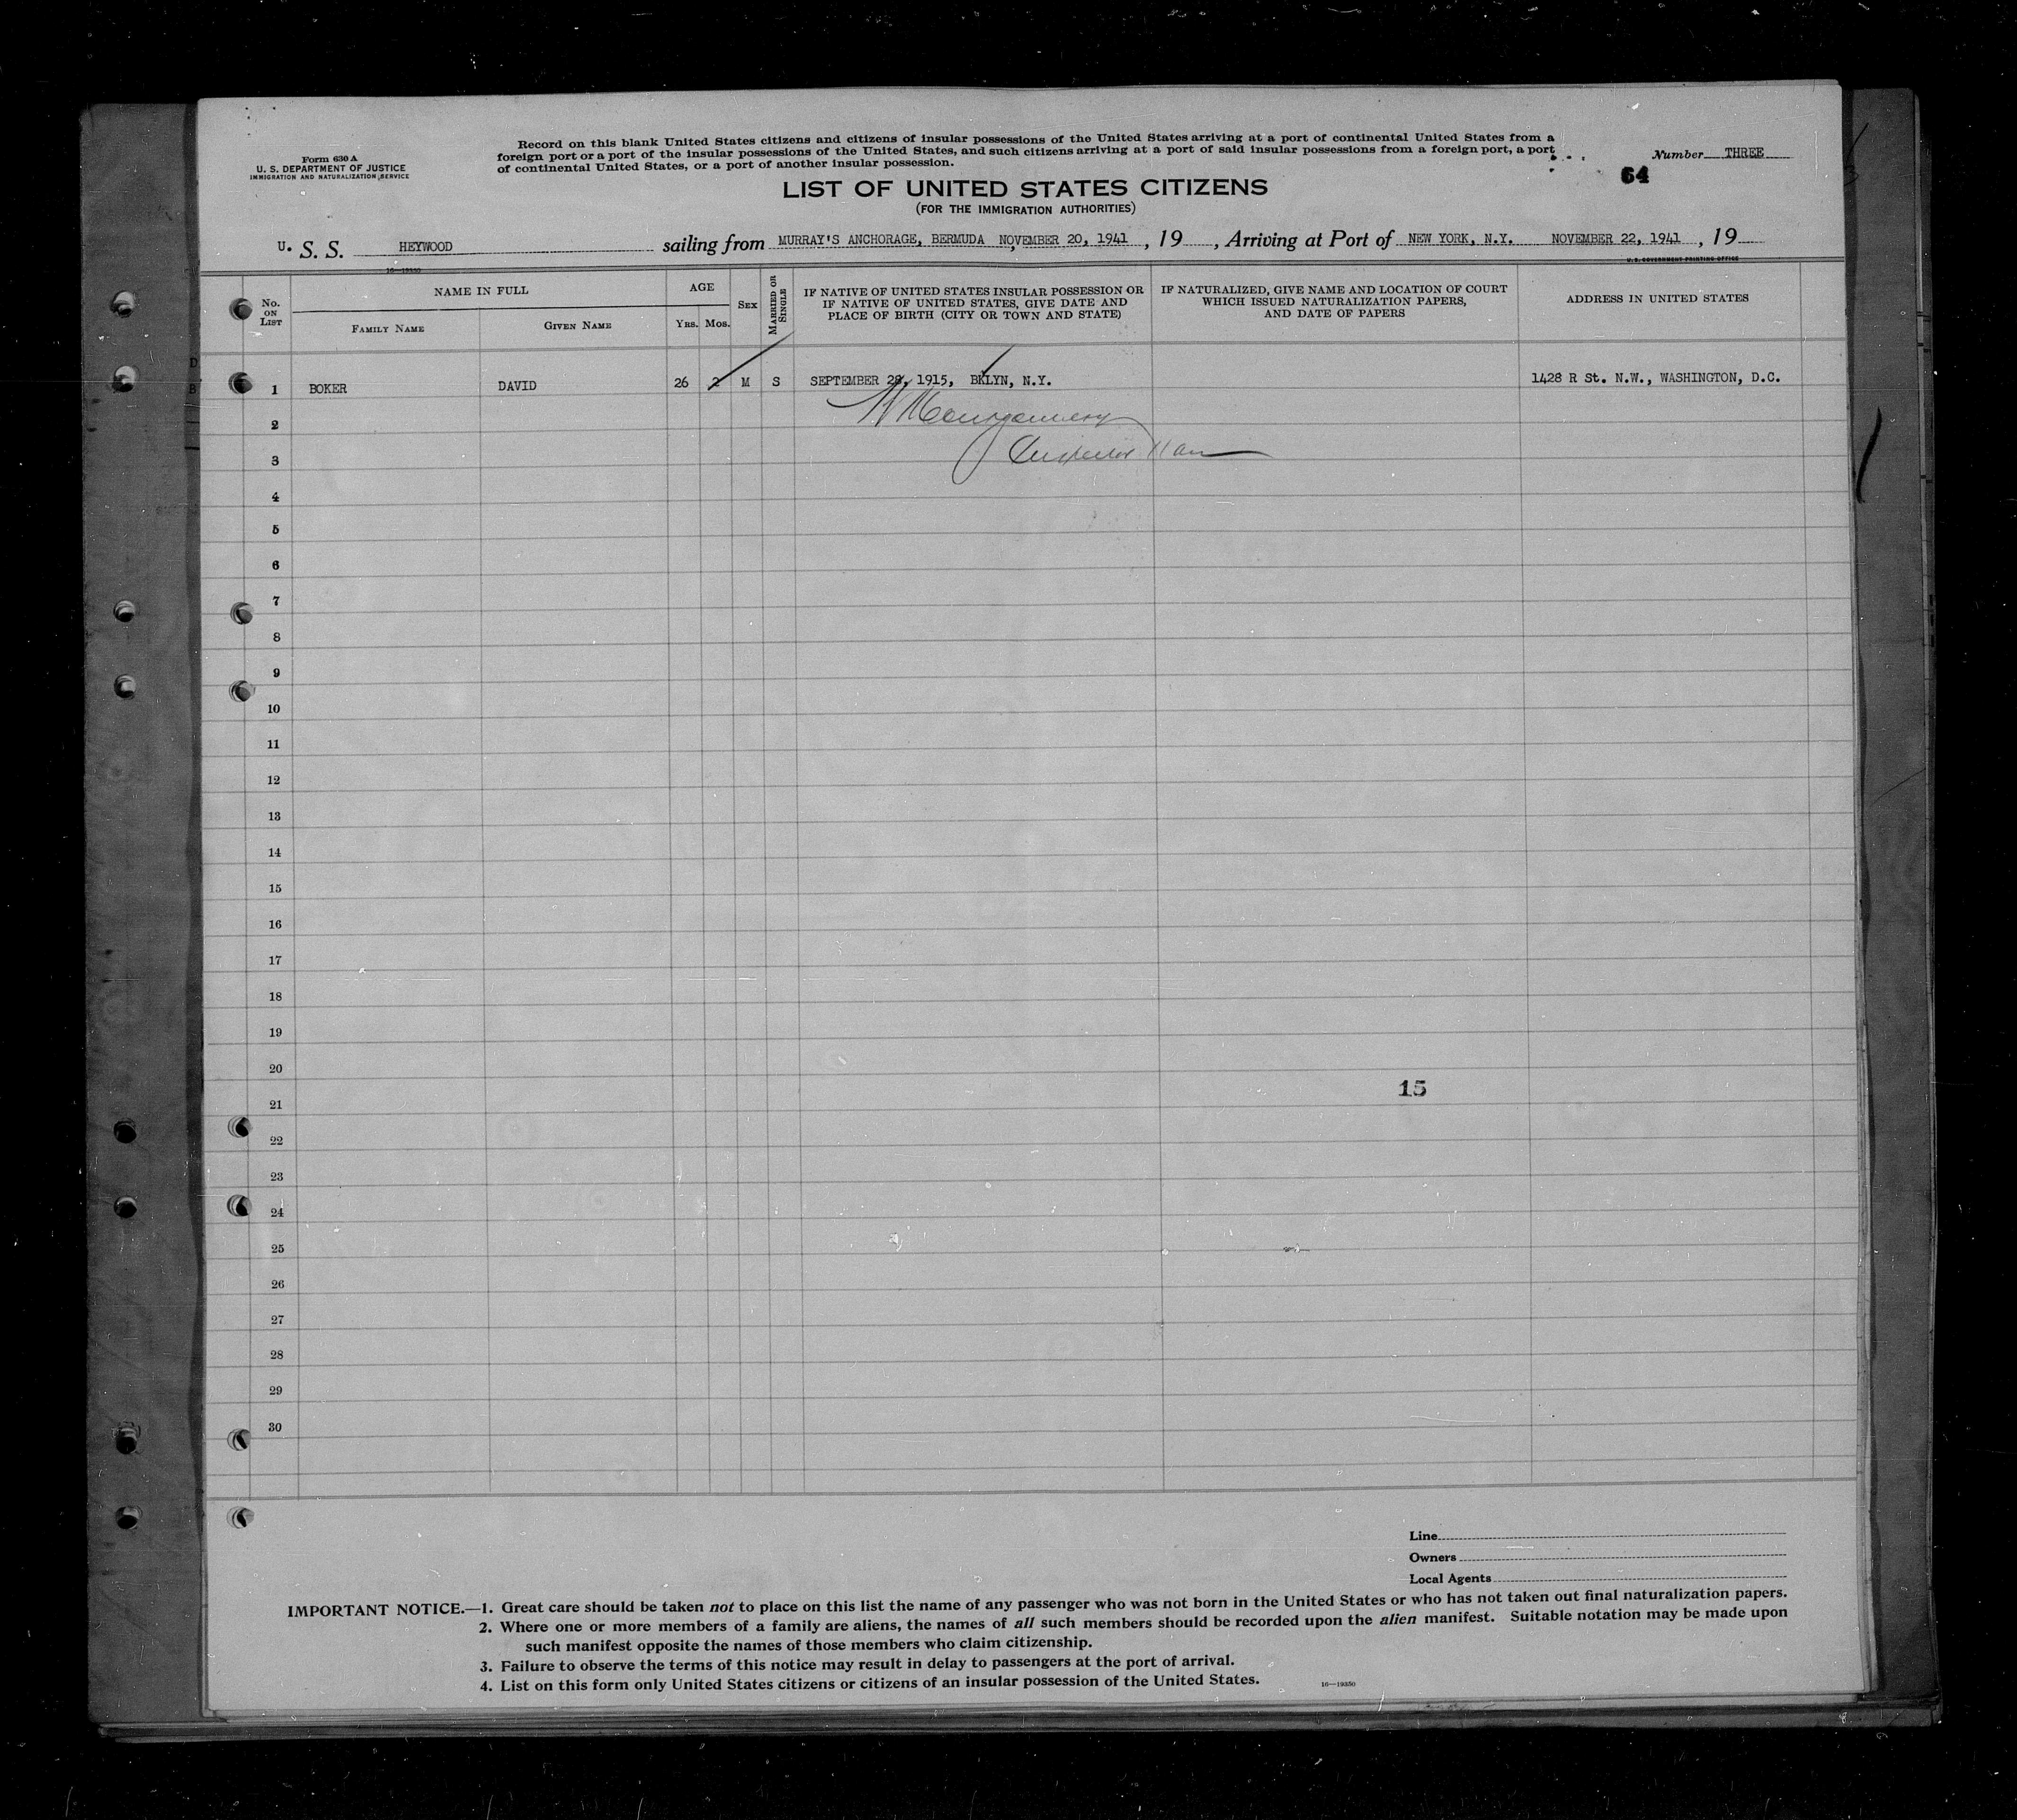 Form 630 A
U. S. DEPARTMENT OF JUSTICE
IMMIGRATION AND NATURALIZATION SERVICE
Record on this blank United States citizens and citizens of insular possessions of the United States arriving at a port of continental United States from a
foreign port or a port of the insular possessions of the United States, and such citizens arriving at a port of said insular possessions from a foreign port, a port
of continental United States, or a port of another insular possession.
Number THREE
64
LIST OF UNITED STATES CITIZENS
(FOR THE IMMIGRATION AUTHORITIES)
U. S. S. HEYWOOD sailing from MURRAY'S ANCHORAGE, BERMUDA NOVEMBER 20, 1941, 19, Arriving at Port of NEW YORK, N.Y. NOVEMBER 22, 1941, 19
16—19350
U.S. GOVERNMENT PRINTING OFFICE
No. ON LIST
NAME IN FULL
FAMILY NAME
GIVEN NAME
AGE
YRS.
MOS.
SEX
MARRIED OR SINGLE
IF NATIVE OF UNITED STATES INSULAR POSSESSION OR
IF NATIVE OF UNITED STATES, GIVE DATE AND
PLACE OF BIRTH (CITY OR TOWN AND STATE)
IF NATURALIZED, GIVE NAME AND LOCATION OF COURT
WHICH ISSUED NATURALIZATION PAPERS,
AND DATE OF PAPERS
ADDRESS IN UNITED STATES
1 BOKER DAVID 26 2 M S SEPTEMBER 28, 1915, BKLYN, N.Y. 1428 R St. N.W., WASHINGTON, D.C.
2 Montgomery
3 Inspector
4
5
6
7
8
9
10
11
12
13
14
15
16
17
18
19
20
15
21
22
23
24
25
26
27
28
29
30
Line
Owners
Local Agents
IMPORTANT NOTICE.—1. Great care should be taken not to place on this list the name of any passenger who was not born in the United States or who has not taken out final naturalization papers.
2. Where one or more members of a family are aliens, the names of all such members should be recorded upon the alien manifest. Suitable notation may be made upon
such manifest opposite the names of those members who claim citizenship.
3. Failure to observe the terms of this notice may result in delay to passengers at the port of arrival.
4. List on this form only United States citizens or citizens of an insular possession of the United States.
16—19350